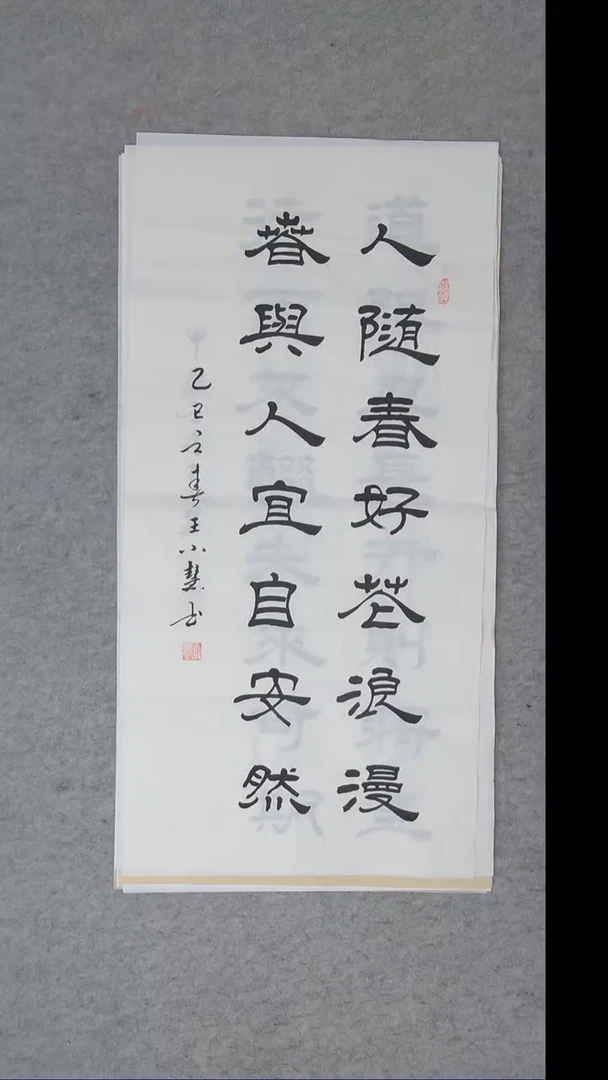 人随春好花浪漫
春與人宜自安然
乙巳之春王小慧书